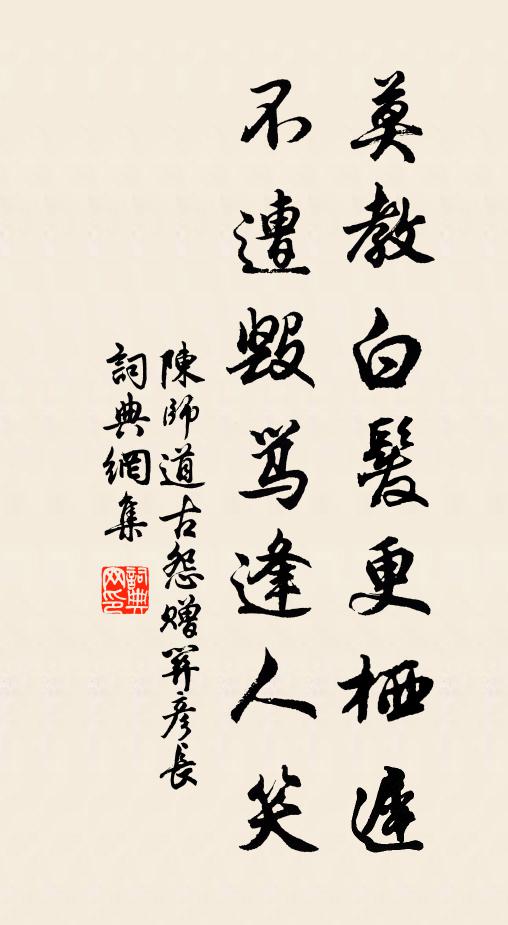 莫教白髮更栖遲
不遭毀骂逢人笑
陳師道古怨贈關彥長
詞典網集
詞典
网印